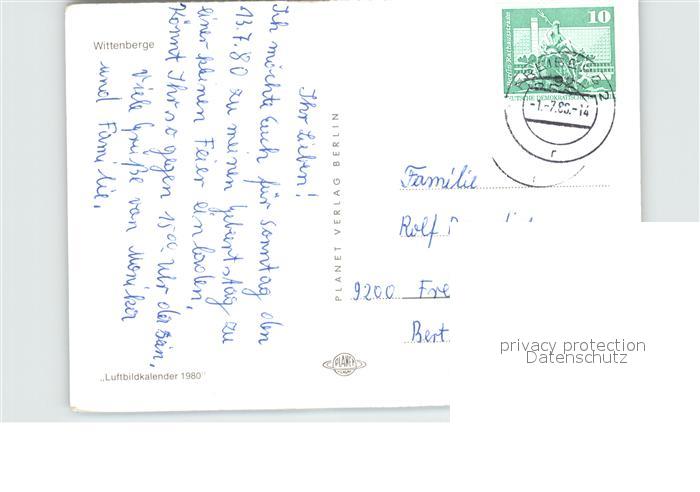 Wittenberge
Ihr Lieben!
Ich möchte Euch für Sonntag den
13.7.80 zu meinen Geburtstag zu
einer kleinen Feier einladen,
Könnt Ihr so gegen 15⁰⁰ Uhr da sein,
Viele Grüße von Monika
und Familie.
„Luftbildkalender 1980"
PLANET VERLAG BERLIN
PLANET
10
Berlin Rathausstraße
DEUTSCHE DEMOKRATISCHE
-1.-7.80.-14
Familie
Rolf
9200 Fre
Bert
privacy protection
Datenschutz